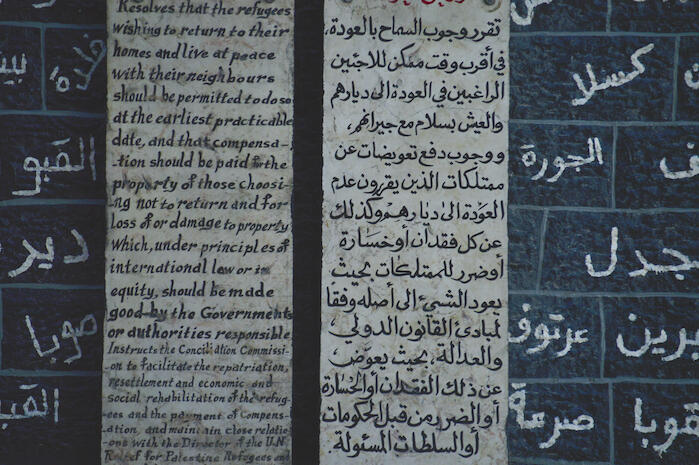 Resolves that the refugees
wishing to return to their
homes and live at peace
with their neighbours
should be permitted to do so
at the earliest practicable
date, and that compensa-
-tion should be paid for the
property of those choosi-
-ng not to return and for
loss of or damage to property
which, under principles of
international law or in
equity, should be made
good by the Governments
or authorities responsible
Instructs the Conciliation Commissi-
-on to facilitate the repatriation,
resettlement and economic and
social rehabilitation of the refug-
-ees and the payment of Compens-
-ation, and maintain close relati-
-ons with the Director of the U.N
Relief for Palestine Refugees and
تقرر وجوب السماح بالعودة،
في أقرب وقت ممكن للاجئين
الراغبين في العودة الى ديارهم
والعش بسلام مع جيرانهم،
ووجوب دفع تعويضات عن
ممتلكات الذين يقررون عدم
العودة الى ديارهم وكذلك
عن كل فقدان أو خسارة
أو ضرر للممتلكات بحيث
يعود الشيئ إلى أصله وفقا
لمبادئ القانون الدولي،
والعدالة، بحيث يعوّض
عن ذلك الفقدان أو الخسارة
أو الضرر من قبل الحكومات
أو السلطات المسئولة.
القبو
دير
صوبا
كسلا
الجورة
عرتوف
صرعة